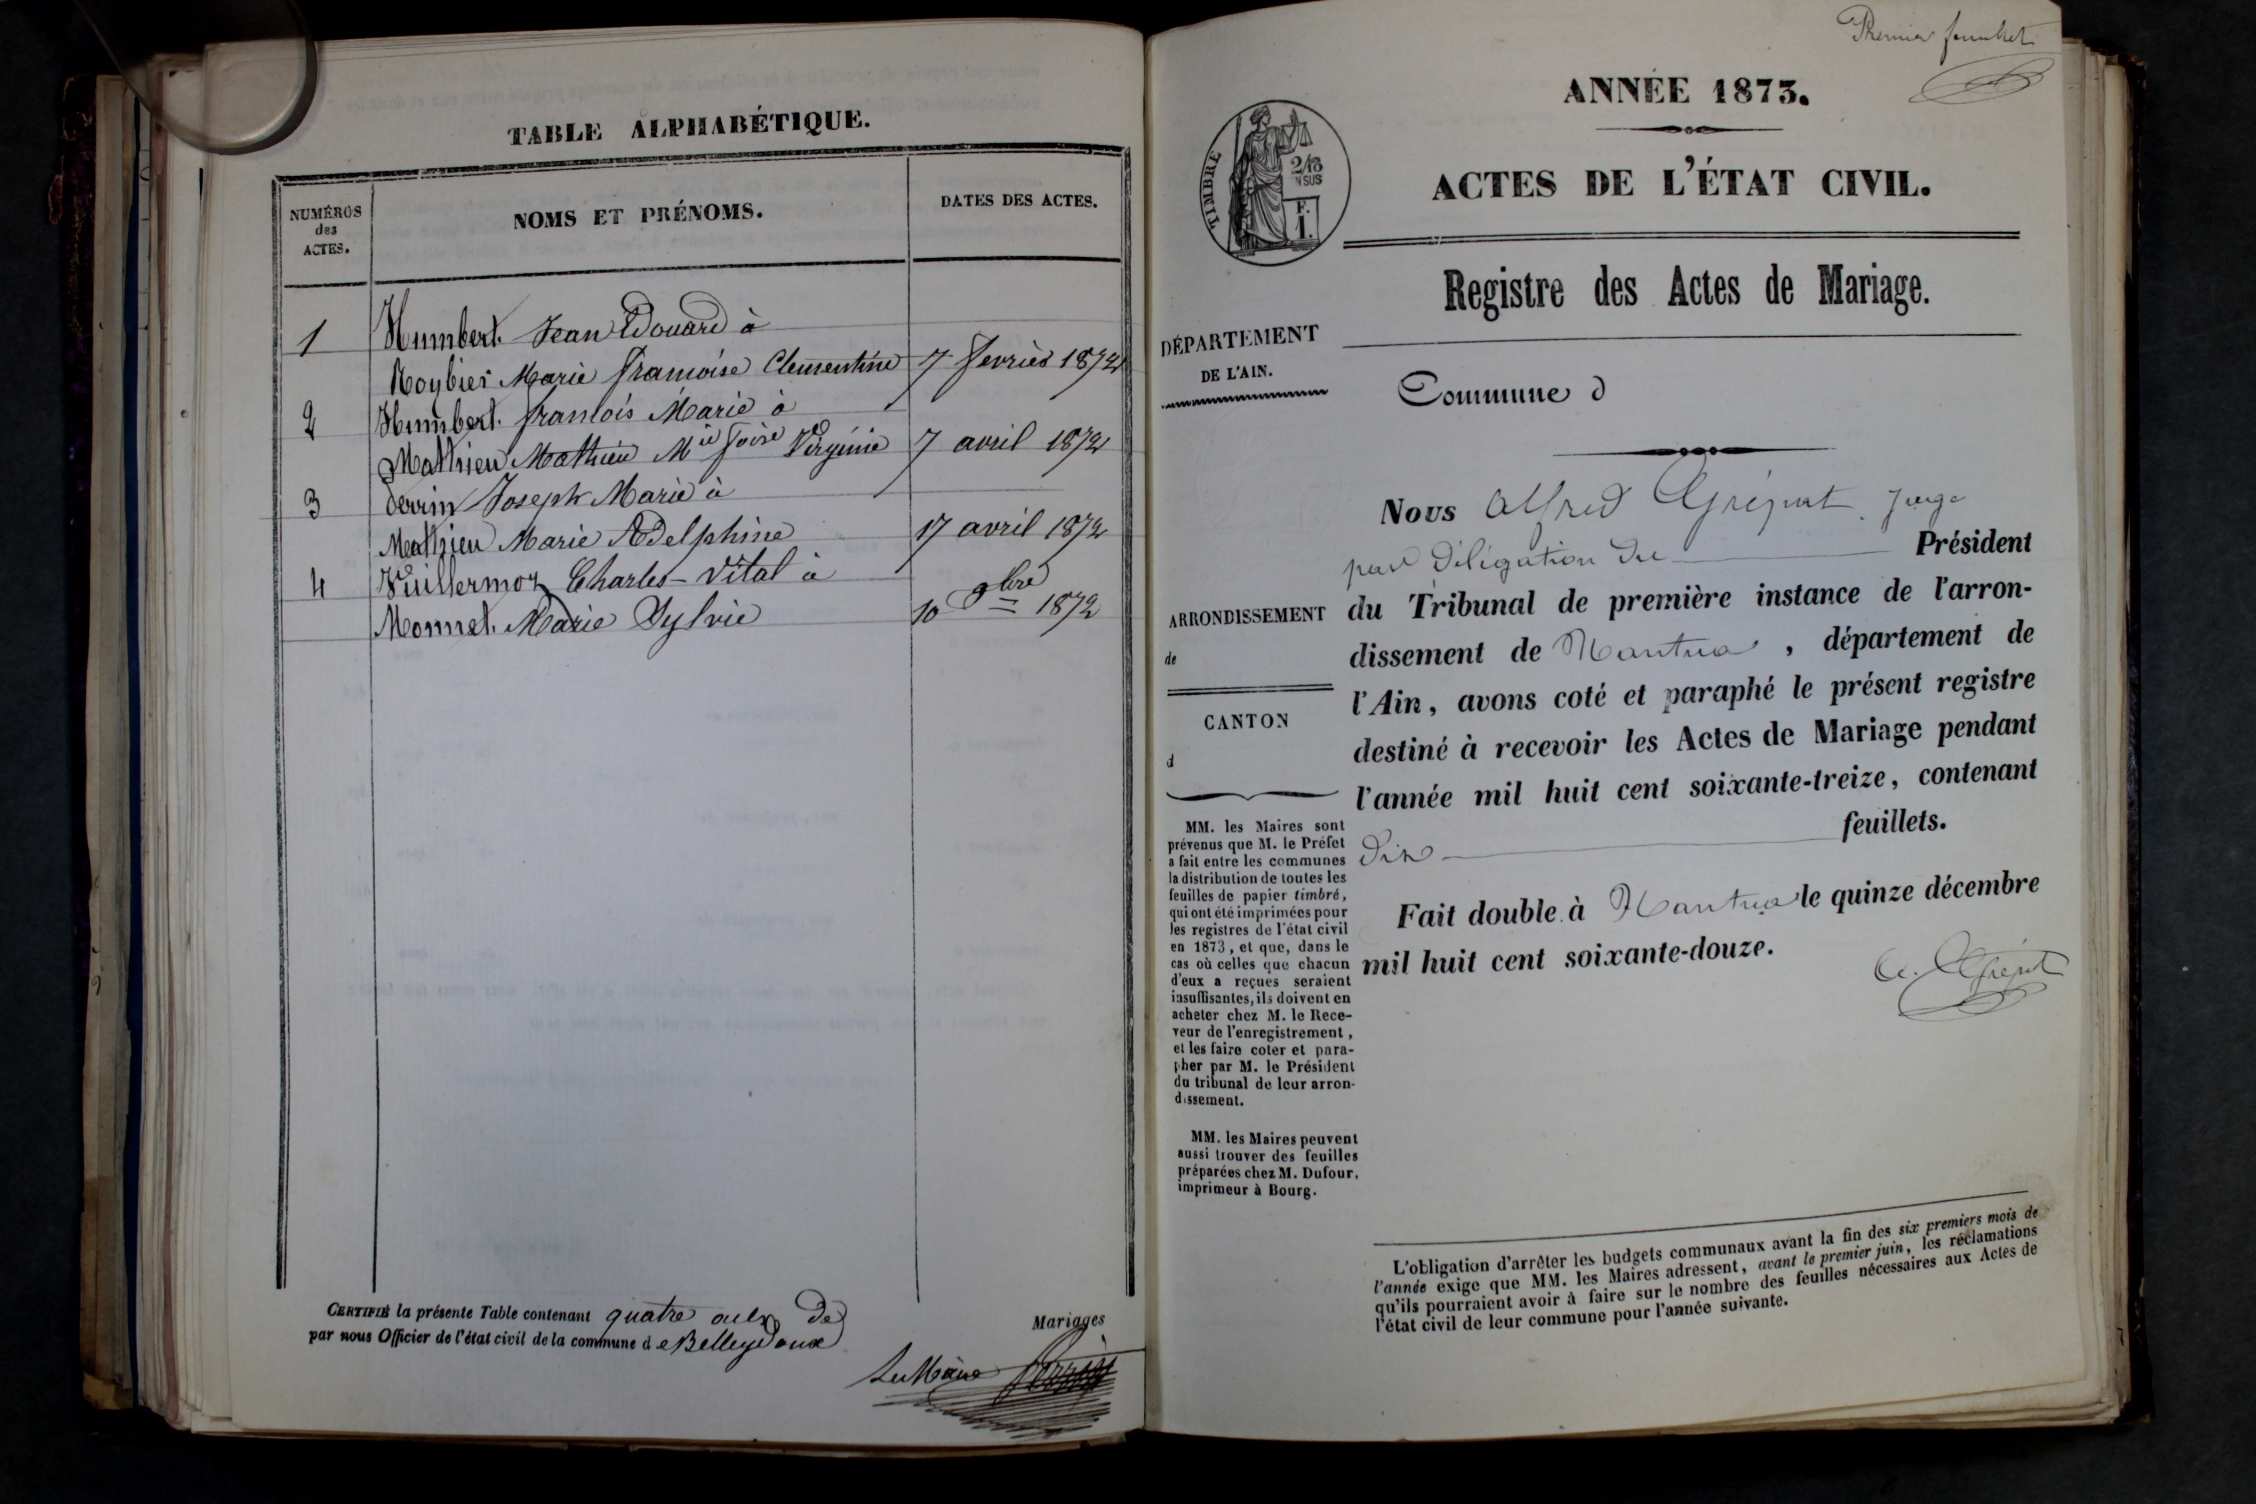 TABLE ALPHABÉTIQUE.
NUMÉROS
des
ACTES.
NOMS ET PRÉNOMS.
DATES DES ACTES.
1 Humbert Jean Edouard à
Roybier Marie françoise Clementine 7 fevrier 1872
2 Humbert françois Marie à
Mathieu Mathieu Mie foise Virginie 7 avril 1872
3 Perrin Joseph Marie à
Mathieu Marie Adelphine 17 avril 1872
4 Vuillermoz Charles-Vital à
Monnet Marie Sylvie 10 9bre 1872
CERTIFIÉ la présente Table contenant quatre actes de Mariages
par nous Officier de l'état civil de la commune de Belleydoux
Le Maire Perrin
Premier feuillet
ANNÉE 1873.
ACTES DE L'ÉTAT CIVIL.
TIMBRE
2/10
EN SUS
F.
1.
Registre des Actes de Mariage.
DÉPARTEMENT
DE L'AIN.
Commune d
ARRONDISSEMENT
de
CANTON
d
MM. les Maires sont
prévenus que M. le Préfet
a fait entre les communes
la distribution de toutes les
feuilles de papier timbré,
qui ont été imprimées pour
les registres de l'état civil
en 1873, et que, dans le
cas où celles que chacun
d'eux a reçues seraient
insuffisantes, ils doivent en
acheter chez M. le Rece-
veur de l'enregistrement,
et les faire coter et para-
pher par M. le Président
du tribunal de leur arron-
dissement.
MM. les Maires peuvent
aussi trouver des feuilles
préparées chez M. Dufour,
imprimeur à Bourg.
Nous Alfred juge
par délégation du Président
du Tribunal de première instance de l'arron-
dissement de Nantua, département de
l'Ain, avons coté et paraphé le présent registre
destiné à recevoir les Actes de Mariage pendant
l'année mil huit cent soixante-treize, contenant
dix feuillets.
Fait double à Nantua le quinze décembre
mil huit cent soixante-douze.
L'obligation d'arrêter les budgets communaux avant la fin des six premiers mois de
l'année exige que MM. les Maires adressent, avant le premier juin, les réclamations
qu'ils pourraient avoir à faire sur le nombre des feuilles nécessaires aux Actes de
l'état civil de leur commune pour l'année suivante.